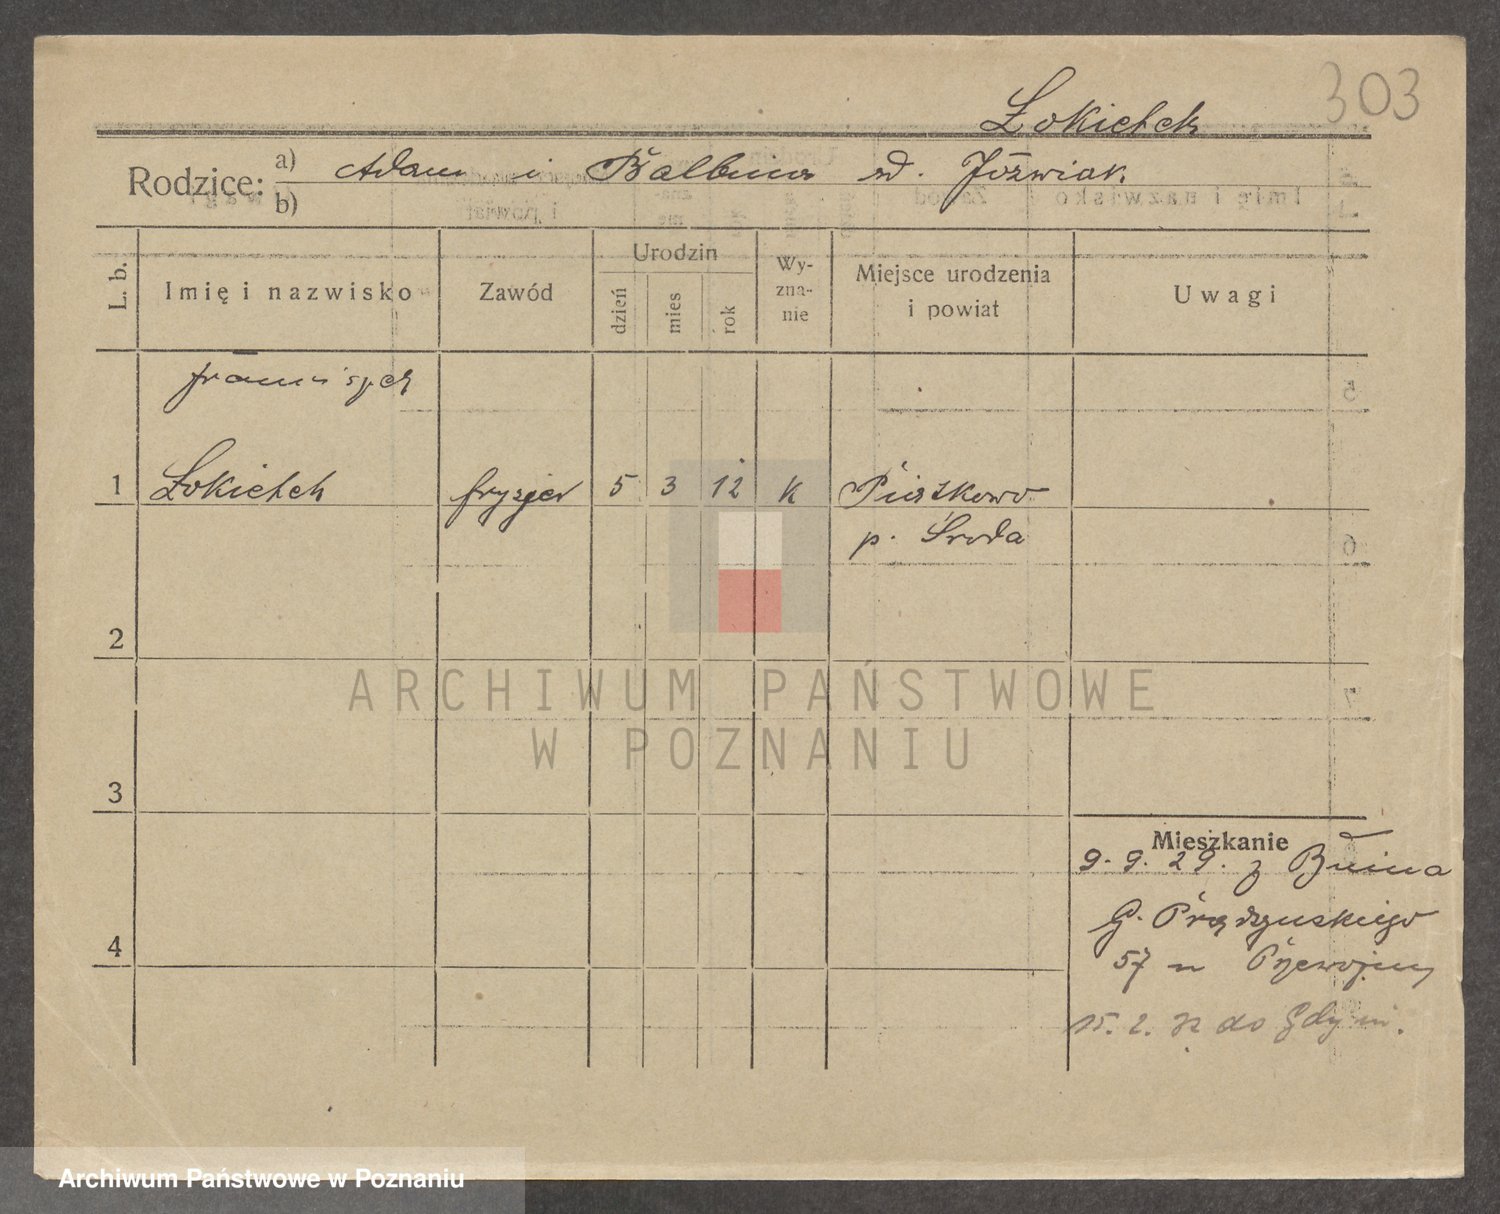 303
Łokietek
Rodzice: a) Adam i Balbina zd. Jóźwiak
b)
L. b.
Imię i nazwisko
Zawód
Urodzin
dzień
mies
rok
Wy-
zna-
nie
Miejsce urodzenia
i powiat
Uwagi
Franciszek
1 Łokietek fryzjer 5 3 12 K Piątkowo
p. Środa
2
3
4
Mieszkanie
9. 9. 29. z Bnina
G. Prądzyńskiego
57 u
15. 2. do Gdyni.
ARCHIWUM PAŃSTWOWE
W POZNANIU
Archiwum Państwowe w Poznaniu